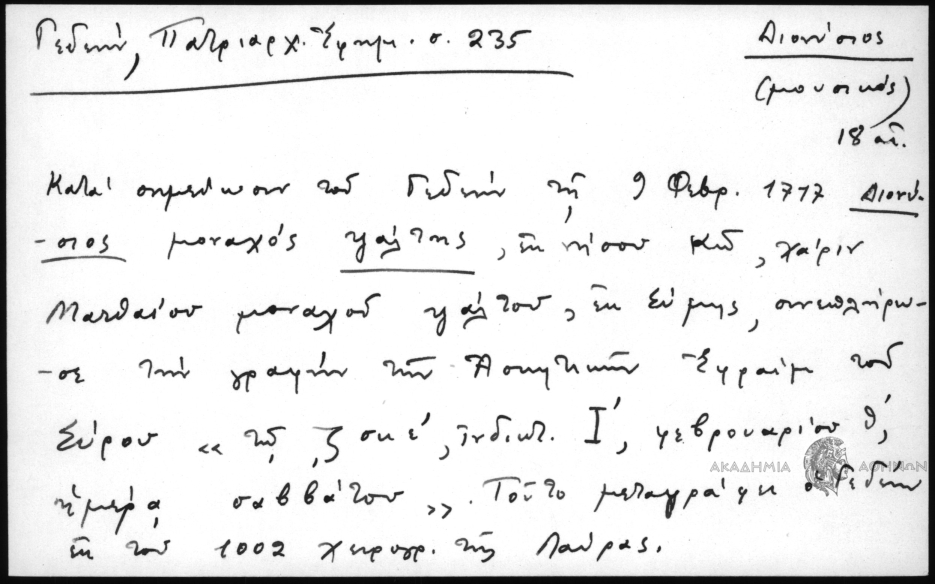 Γεδεών, Πατριαρχ. Ἐφημ. σ. 235
Διονύσιος
(μουσικός)
18 αἰ.
Κατὰ σημείωσιν τοῦ Γεδεών τῇ 9 Φεβρ. 1717 Διονύ-
-σιος μοναχός ψάλτης, ἐκ νήσου Κῶ, χάριν
Ματθαίου μοναχοῦ ψάλτου, ἐκ Σύμης, συνεπλήρω-
-σε τὴν γραφήν τῶν Ἀσκητικῶν Ἐφραίμ τοῦ
Σύρου « τῷ ͵ζσκε΄, ἰνδικτ. Ι΄, φεβρουαρίου θ΄,
ἡμέρᾳ σαββάτου ». Τοῦτο μεταγράφει ὁ Γεδεών
ἐκ τοῦ 1002 χειρογρ. τῆς Λαύρας.
ΑΚΑΔΗΜΙΑ ΑΘΗΝΩΝ